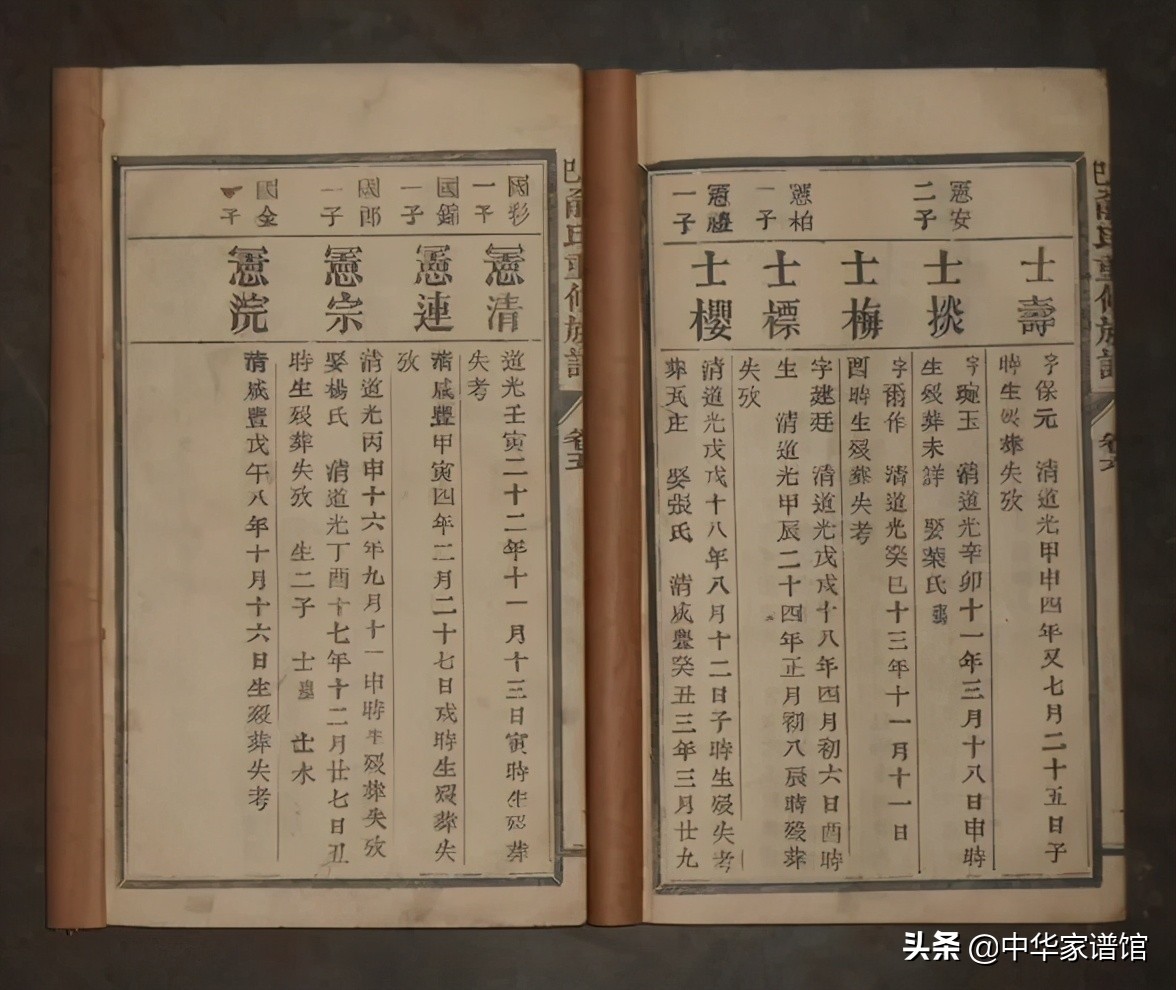 憲安
二子
憲柏
一子
憲禮
一子
士壽
士掞
士梅
士標
士櫻
字保元 清道光甲申四年又七月二十五日子
時生歿葬失攷
字琬玉 清道光辛卯十一年三月十八日申時
生歿葬未詳 娶葉氏
字爾作 清道光癸巳十三年十一月十一日
酉時生歿葬失考
字建廷 清道光戊戌十八年四月初六日酉時
生 清道光甲辰二十四年正月初八辰時歿葬
失攷
清道光戊戌十八年八月十二日子時生歿失考
葬瓦庄 娶張氏 清咸豐癸丑三年三月廿九
重修族譜
卷六
國彩
一子
國錦
一子
國郎
一子
國金
一子
憲清
憲連
憲宗
憲浣
道光壬寅二十二年十一月十三日寅時生歿葬
失考
清咸豐甲寅四年二月二十七日戌時生歿葬失
攷
清道光丙申十六年九月十一申時生歿葬失攷
娶楊氏 清道光丁酉十七年十二月廿七日丑
時生歿葬失攷 生二子 士 士木
清咸豐戊午八年十月十六日生歿葬失考
重修族譜
卷五
头条 @中华家谱馆